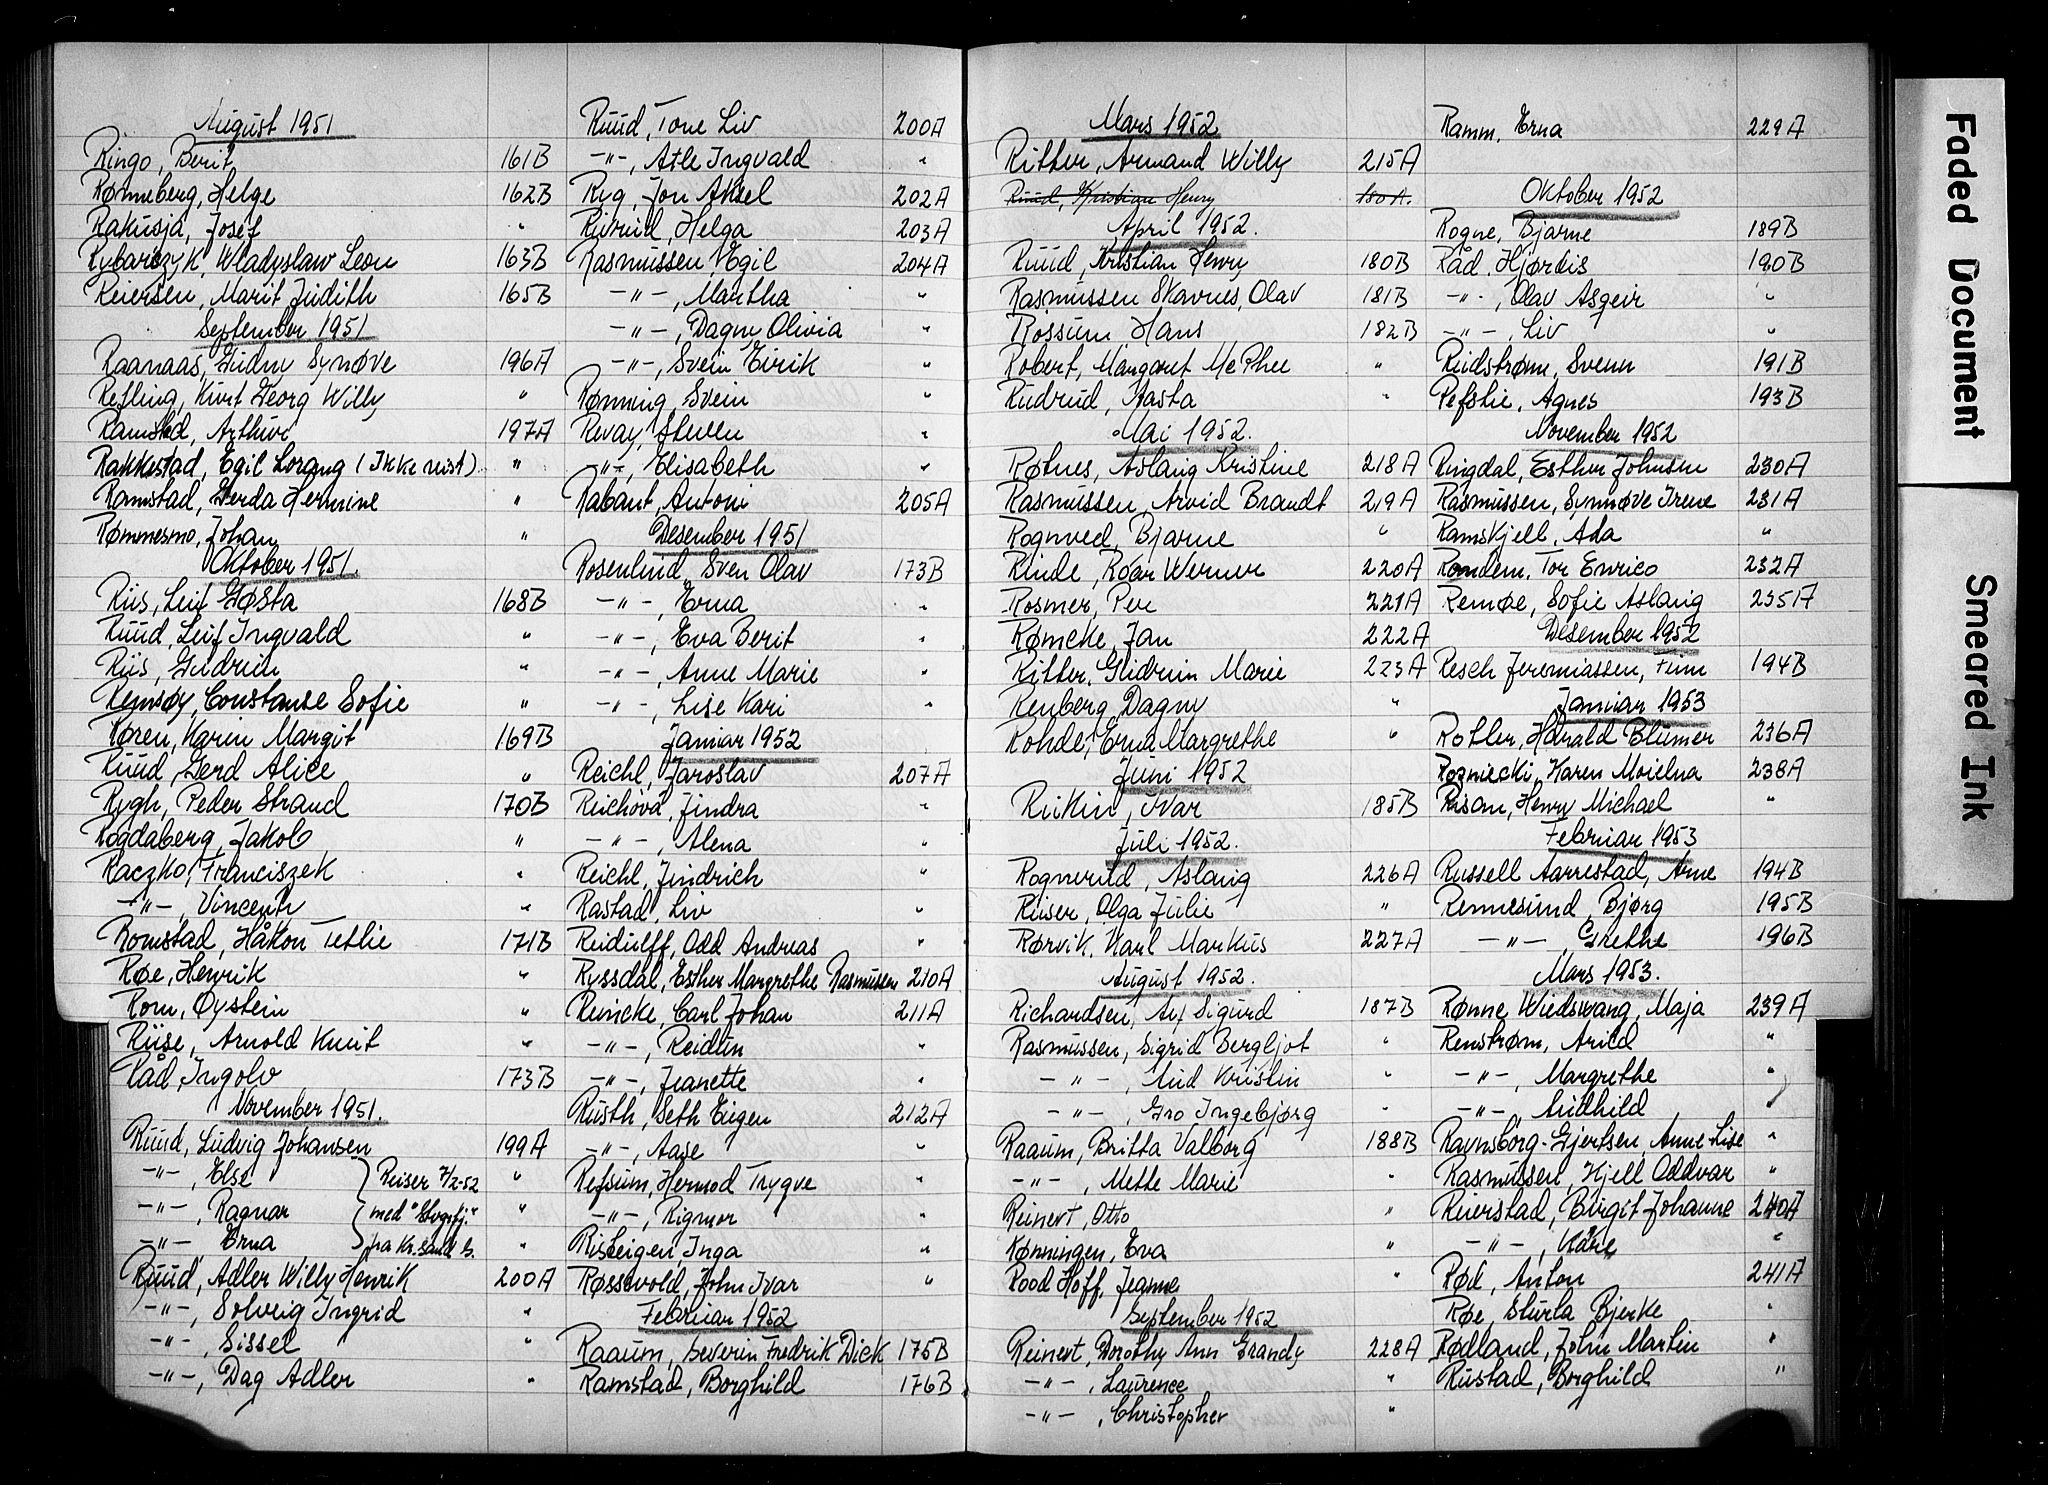 August 1951
Ringo, Berit 161B
Rønneberg, Helge 162B
Rakusja, Josef "
Rybarczyk, Wladyslaw Leon 163B
Reiersen, Marit Judith 165B
September 1951
Raanaas, Gudny Synøve 196A
Refling, Kurt Georg Willy "
Ramstad, Arthur 197A
Rakkestad, Egil Lorang (Ikke reist) "
Ramstad, Gerda Hermine "
Rømmesmo, Johan "
Oktober 1951.
Riis, Leif Gøsta 168B
Ruud, Leif Ingvald "
Riis, Gudrun "
Remsøy, Constanse Sofie "
Røren, Karin Margit 169B
Ruud, Gerd Alice "
Rygh, Peder Strand 170B
Rogdaberg, Jakob "
Raczko, Franciszek "
-"-, Vincenty "
Romstad, Håkon Tetlie 171B
Røe, Henrik "
Rom, Øystein "
Riise, Arnold Knut "
Råd, Ingolv 173B
November 1951.
Ruud, Ludvig Johansen 199A
-"-, Else } Reiser 7/2-52 "
-"-, Ragnar } med "Stvgsfj." "
-"- Erna } fra Kr.sand S. "
Ruud, Adler Willy Henrik 200A
-"-, Solveig Ingrid "
-"-, Sissel "
-"-, Dag Adler "
Ruud, Tone Liv 200A
-"-, Atle Ingvald "
Ryg, Jon Aksel 202A
Rivrud, Helga 203A
Rasmussen, Egil 204A
-"-, Martha "
-"-, Dagny Olivia "
-"-, Svein Eirik "
Rønning, Svein "
Revay, Steven "
-"-, Elisabeth "
Rabant, Antoni 205A
Desember 1951
Rosenlund, Sven Olav 173B
-"-, Erna "
-"-, Eva Berit "
-"-, Anne Marie "
-"-, Lise Kari "
Januar 1952
Reichl, Jaroslav 207A
Reichová, Jindra "
-"-, Alena "
Reichl, Jindrich "
Rastad, Liv "
Reidulff, Odd Andreas "
Ryssdal, Esther Margrethe Rasmussen 210A
Reincke, Carl Johan 211A
-"-, Reidun "
-"-, Jeanette "
Rusth, Seth Eigen 212A
-"-, Aase "
Refsum, Hermod Trygve "
-"-, Rigmor "
Risteigen, Inga "
Røssevold, John Ivar "
Februar 1952
Raaum, Severin Fredrik Dick 175B
Ramstad, Borghild 176B
Mars 1952
Ritter, Armand Willy 215A
Ruud, Kristian Henry 180A.
April 1952.
Ruud, Kristian Henry 180B
Rasmussen Skavnes, Olav 181B
Rossum Hans 182B
Robert, Margaret McPhee "
Rudrud, Aasta "
Mai 1952.
Røtnes, Aslaug Kristine 218A
Rasmussen, Arvid Brandt 219A
Rognved, Bjarne "
Rinde, Roar Werner 220A
Rosmer, Per 221A
Rømcke, Jan 222A
Ritter, Gudrun Marie 223A
Renberg, Dagny "
Rohde, Erna Margrethe "
Juni 1952
Rukin, Ivar 185B
Juli 1952.
Rognerud, Aslaug 226A
Ruser, Olga Julie "
Rørvik, Karl Markus 227A
August 1952.
Richardsen, Alf Sigurd 187B
Rasmussen, Sigrid Bergljot "
-"-, Aud Kristin "
-"-, Gro Ingebjørg "
Raaum, Britta Valborg 188B
-"-, Mette Marie "
Reinert, Otto "
Rønningen, Eva "
Rood Hoff, Jeanne "
September 1952
Reinert, Dorothy Ann Grandy 228A
-"-, Laurence "
-"-, Christopher "
Ramm, Erna 229A
Oktober 1952
Rogne, Bjarne 189B
Råd, Hjørdis 190B
-"-, Olav Asgeir "
-"-, Liv "
Rudstrøm, Svenn 191B
Refslie, Agnes 193B
November 1952
Ringdal, Esther Johnsen 230A
Rasmussen, Synnøve Irene 231A
Ramskjell, Ada "
Romdem, Tor Enrico 232A
Remøe, Sofie Aslaug 235A
Desember 1952
Resch Jeremiassen, Finn 194B
Januar 1953
Rotler, Harald Blumer 236A
Rozniecki, Karen Moielna 238A
Risan, Henry Michael "
Februar 1953
Russell Aarrestad, Arne 194B
Rennesund, Bjørg 195B
-"-, Grethe 196B
Mars 1953.
Rønne Wiedswang, Maja 239A
Renstrøm, Arild "
-"-, Margrethe "
-"-, Audhild "
Ravnsborg-Gjertsen, Anne-Lise "
Rasmussen, Kjell Oddvar "
Ruerstad, Birgit Johanne 240A
-"-, Kåre "
Rød, Anton 241A
Røe, Sturla Bjerke "
Rødland, John Martin "
Rustad, Borghild "
Faded Document
Smeared Ink